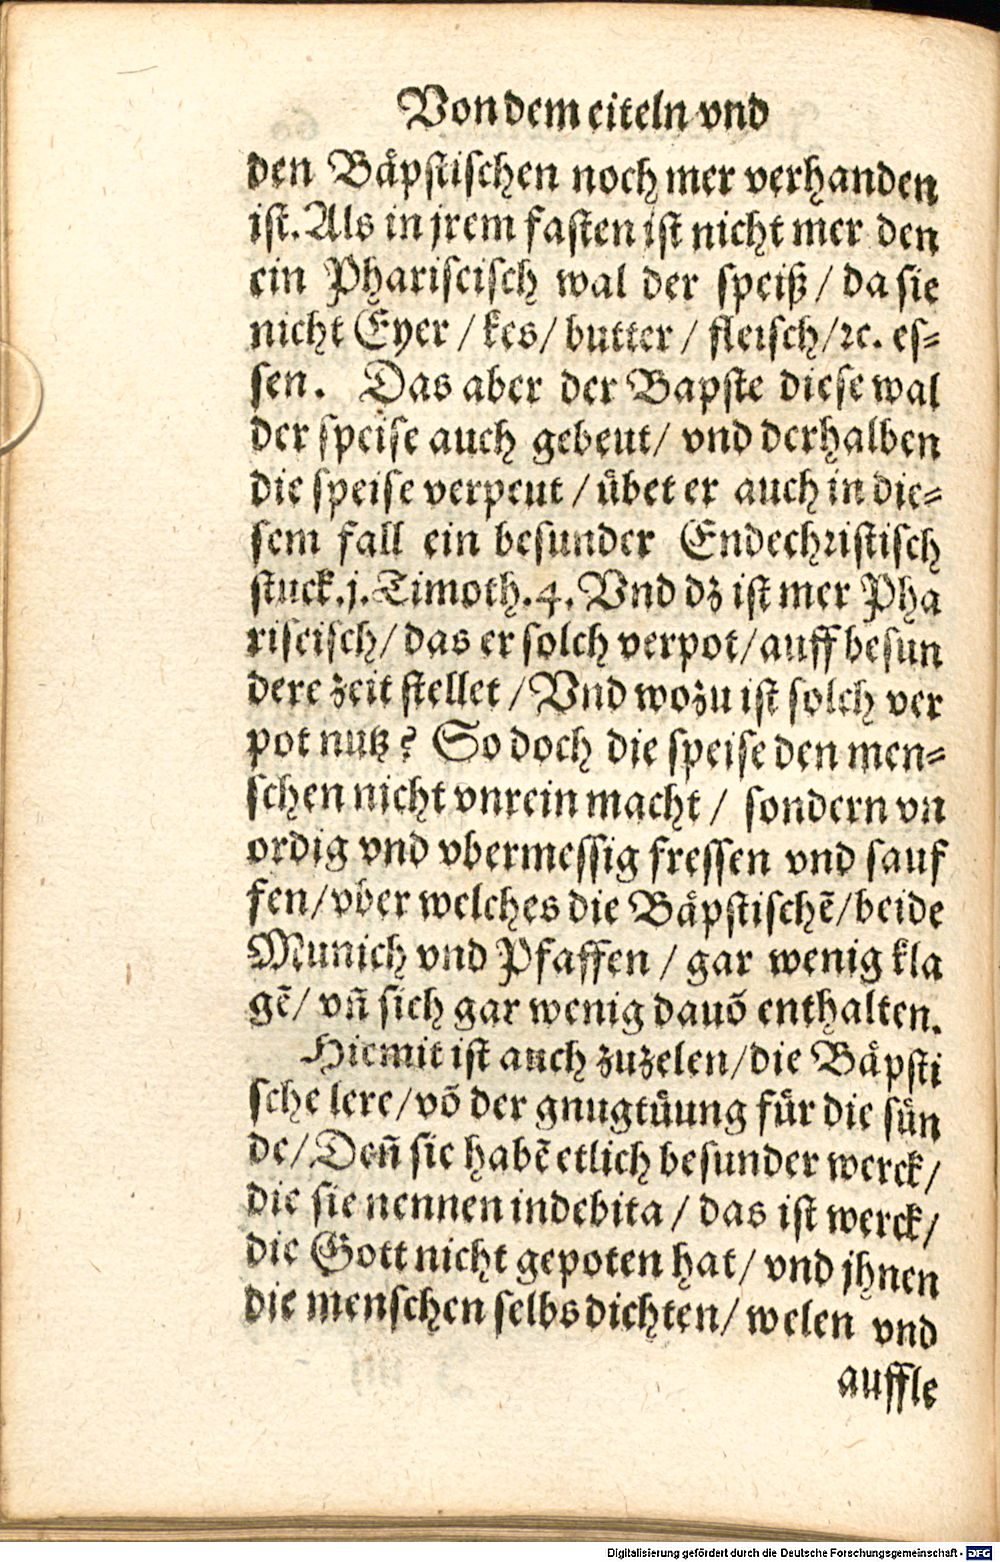 Von dem eiteln vnd
den Bäpstischen noch mer verhanden
ist. Als in jrem fasten ist nicht mer den
ein Phariseisch wal der speiß / da sie
nicht Eyer / kes / butter / fleisch / ꝛc. es⸗
sen. Das aber der Bapste diese wal
der speise auch gebeut / vnd derhalben
die speise verpeut / übet er auch in die⸗
sem fall ein besunder Endechristisch
stuck. j. Timoth. 4. Vnd dz ist mer Pha
riseisch / das er solch verpot / auff besun
dere zeit stellet / Vnd wozu ist solch ver
pot nutz? So doch die speise den men⸗
schen nicht vnrein macht / sondern vn
ordig vnd vbermessig fressen vnd sauf
fen / vber welches die Bäpstischē / beide
Munich vnd Pfaffen / gar wenig kla
gē / vñ sich gar wenig dauō enthalten.
Hiemit ist auch zuzelen / die Bäpsti
sche lere / vō der gnugtüung für die sün
de / Deñ sie habē etlich besunder werck /
die sie nennen indebita / das ist werck /
die Gott nicht gepoten hat / vnd jhnen
die menschen selbs dichten / welen vnd
auffle
Digitalisierung gefördert durch die Deutsche Forschungsgemeinschaft - DFG